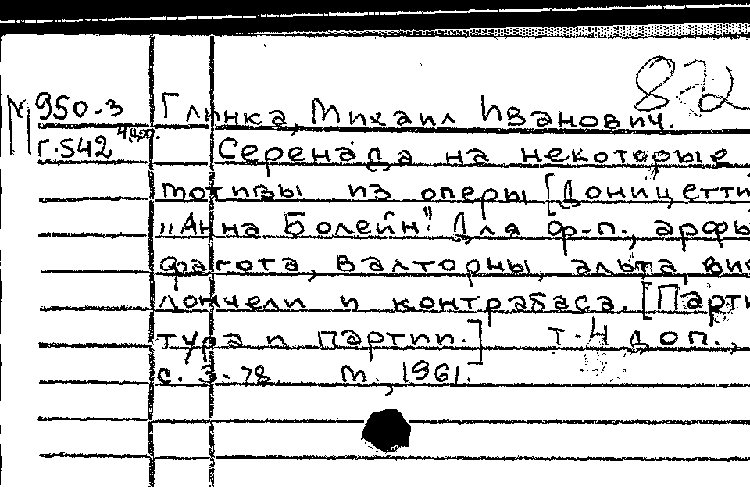 872
М 950-3 Глинка, Михаил Иванович.
Г.542 Серенада на некоторые
мотивы из оперы [Доницетти
„Анна Болейн". Для ф-п., арфы
фагота, валторны, альта, вио
лончели и контрабаса. [Парти
тура и партии.] Т.4 доп.,
с. 3-78 М., 1961.